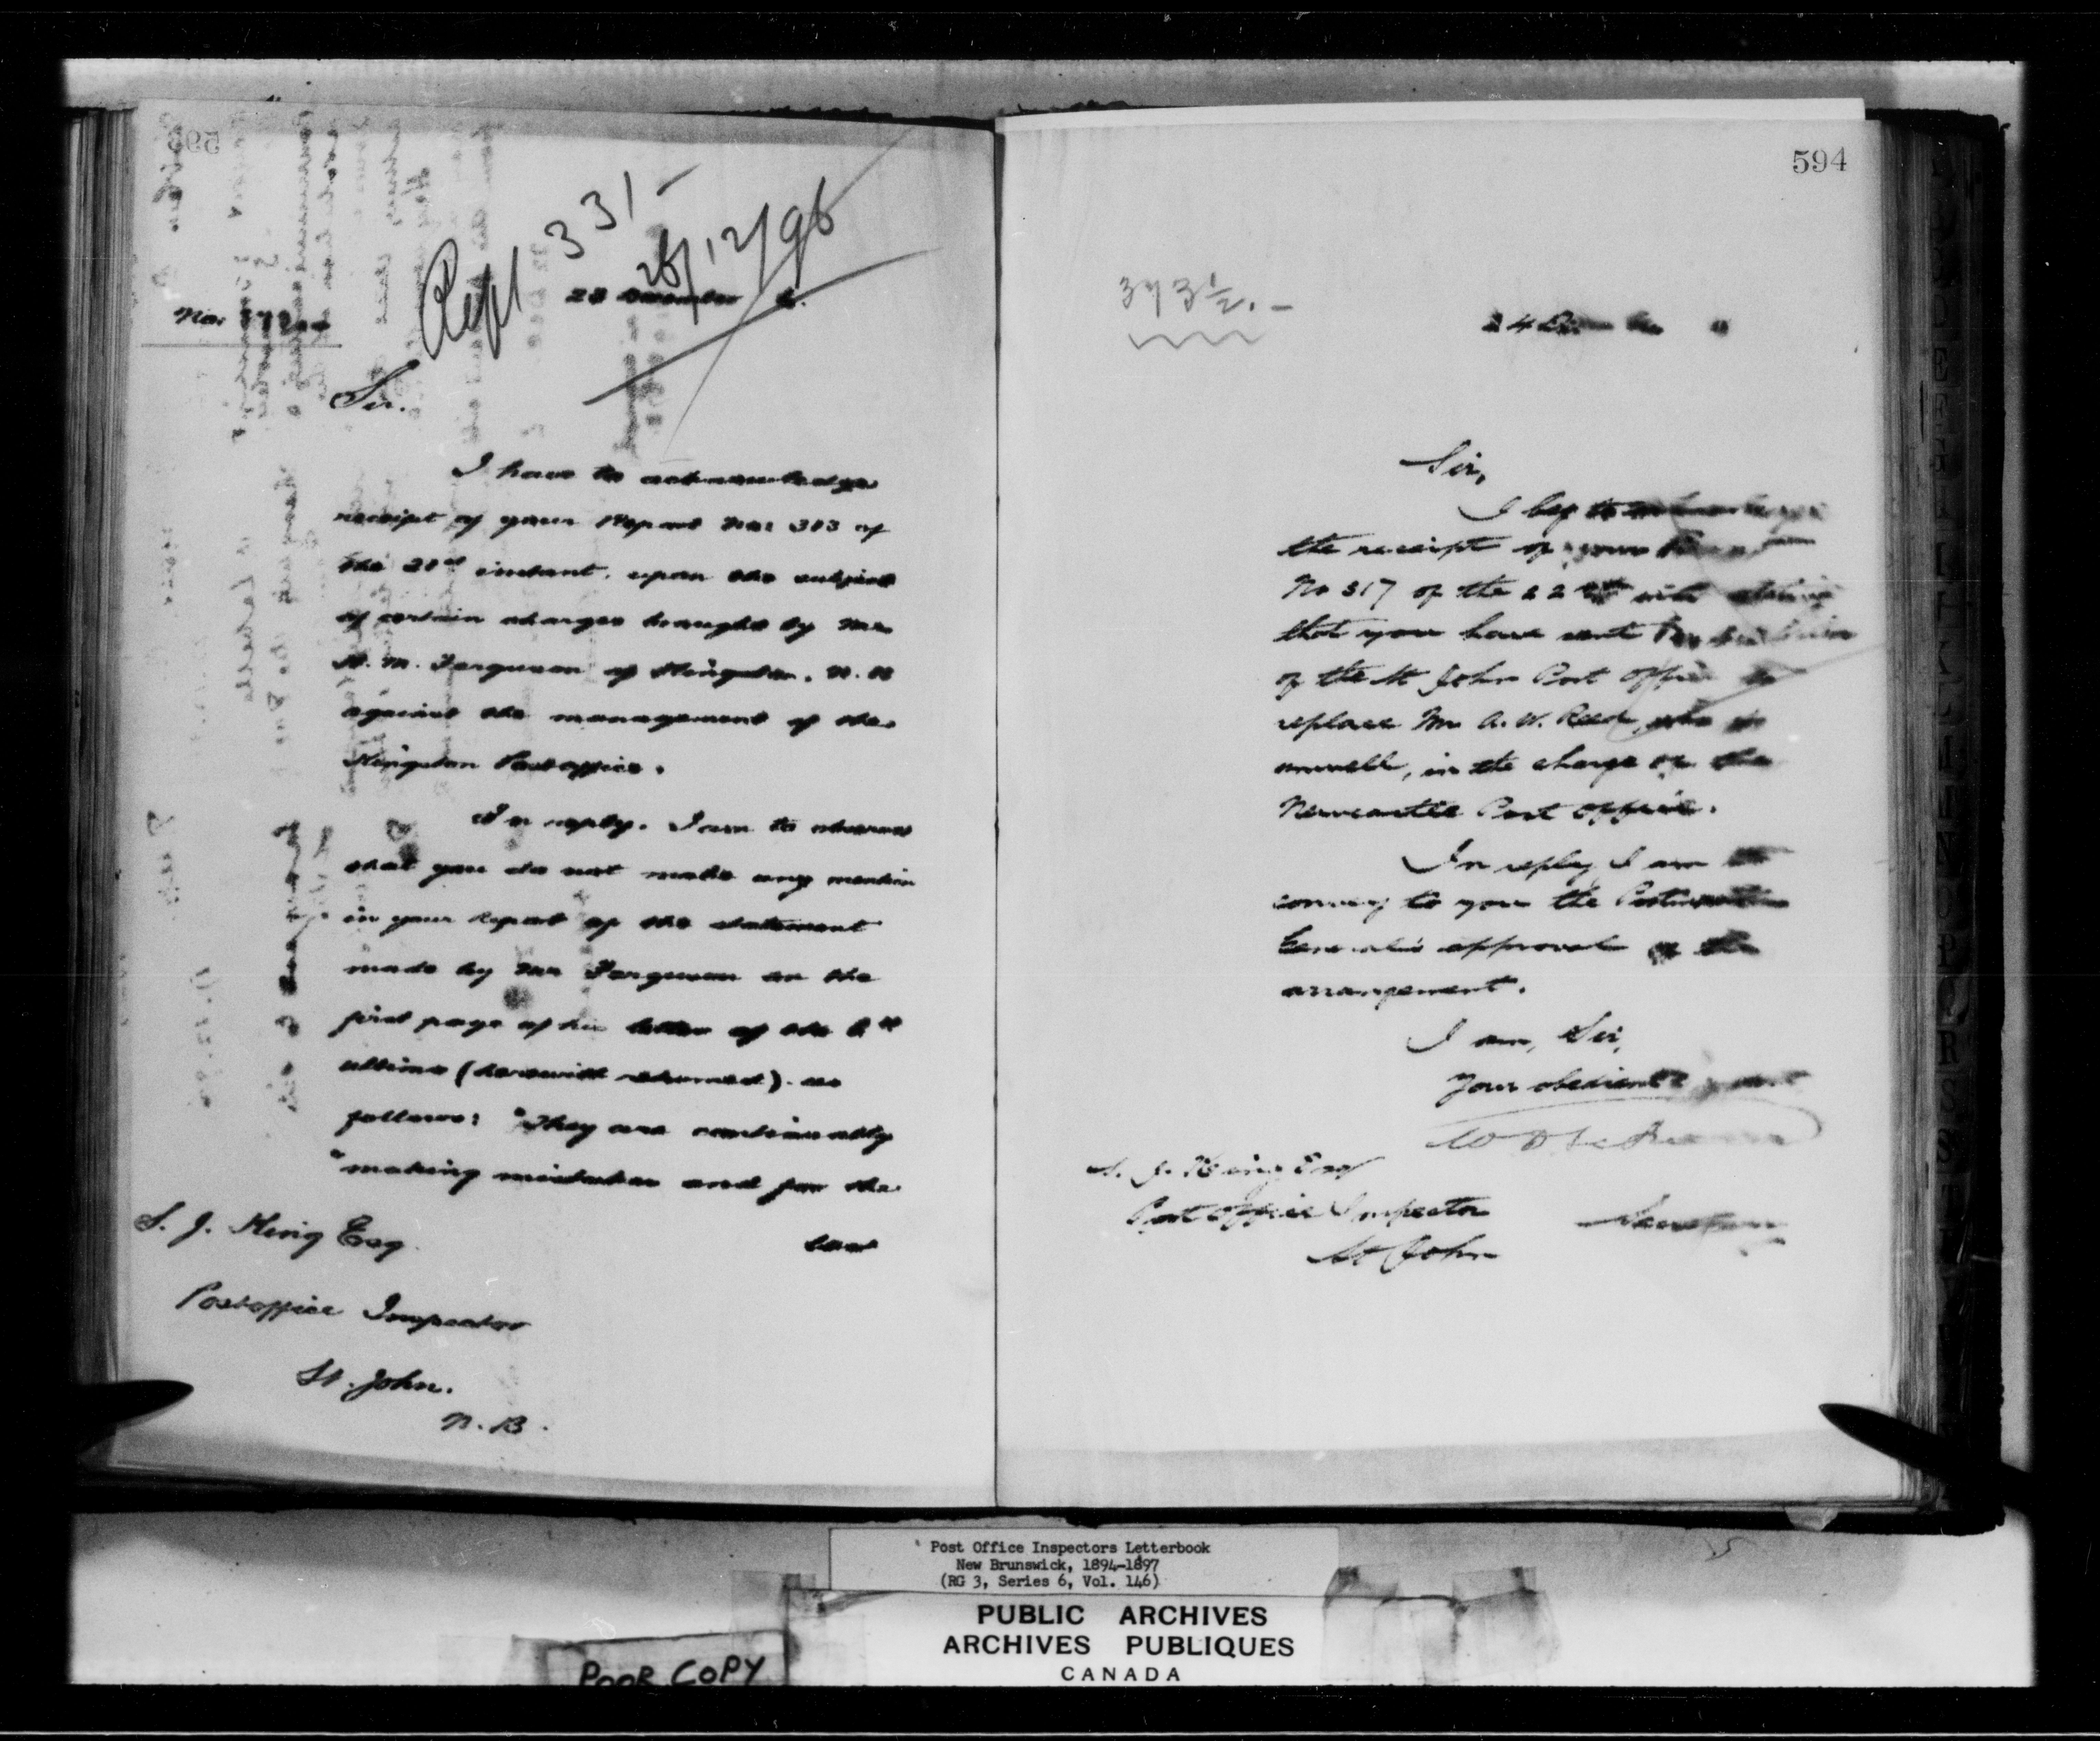 Rept 331-
26/12/96
23 December 6.
No.
Sir.
I have to acknowledge
receipt of your Report No: 313 of
the 21st instant, upon the subject
of certain charges brought by Mr.
H. M. Ferguson of Kingston, N. B
against the management of the
Kingston Postoffice.
In reply. I am to observe
that you do not make any mention
in your Report of the statement
made by Mr Ferguson on the
first page of his letter of the
ultimo (herewith returned). as
follows: "They are continually
"making mistakes and for the
S. J. King Esq
Postoffice Inspector
St. John.
N. B.
594
373½.-
24
Sir,
I beg to acknowledge
the receipt of your
No 317 of the 22nd stating
that you have sent
of the St John Post Office to
replace Mr A. W. Reed, who is
unwell, in the charge of the
Newcastle Post Office.
In reply I am to
convey to you the Postmaster
General's approval of the
arrangement.
I am, Sir,
Your obedient servant
S. J. King Esq
Post Office Inspector
St John
Secretary
Post Office Inspectors Letterbook
New Brunswick, 1894-1897
(RG 3, Series 6, Vol. 146)
PUBLIC ARCHIVES
ARCHIVES PUBLIQUES
CANADA
POOR COPY